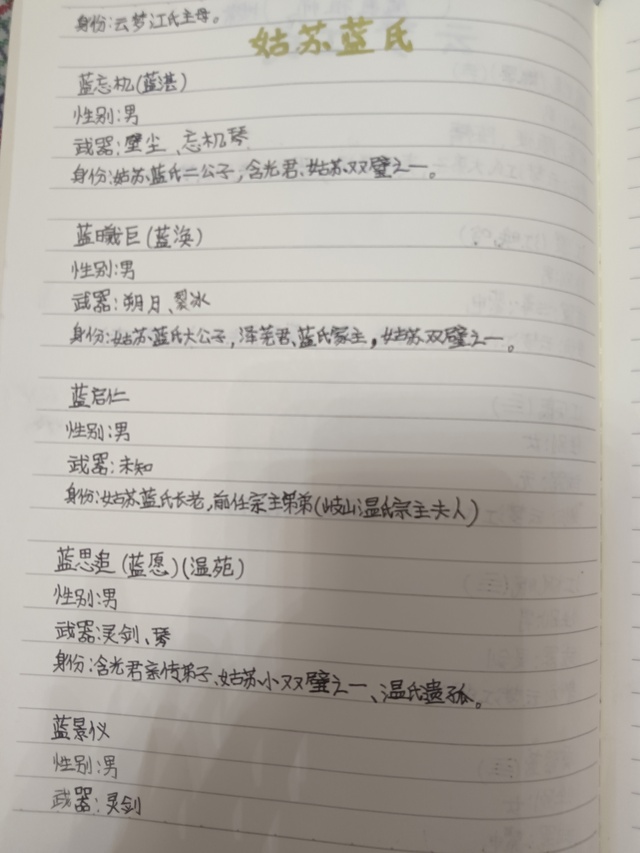 身份:云梦江氏主母。
姑苏蓝氏
蓝忘机(蓝湛)
性别:男
武器:壁尘、忘机琴
身份:姑苏蓝氏二公子,含光君、姑苏双璧之一。
蓝曦巨(蓝涣)
性别:男
武器:朔月、裂冰
身份:姑苏蓝氏大公子,泽芜君、蓝氏家主,姑苏双璧之一。
蓝启仁
性别:男
武器:未知
身份:姑苏蓝氏长老,前任宗主弟弟(岐山温氏宗主夫人)
蓝思追(蓝愿)(温苑)
性别:男
武器:灵剑、琴
身份:含光君亲传弟子、姑苏小双璧之一、温氏遗孤。
蓝景仪
性别:男
武器:灵剑